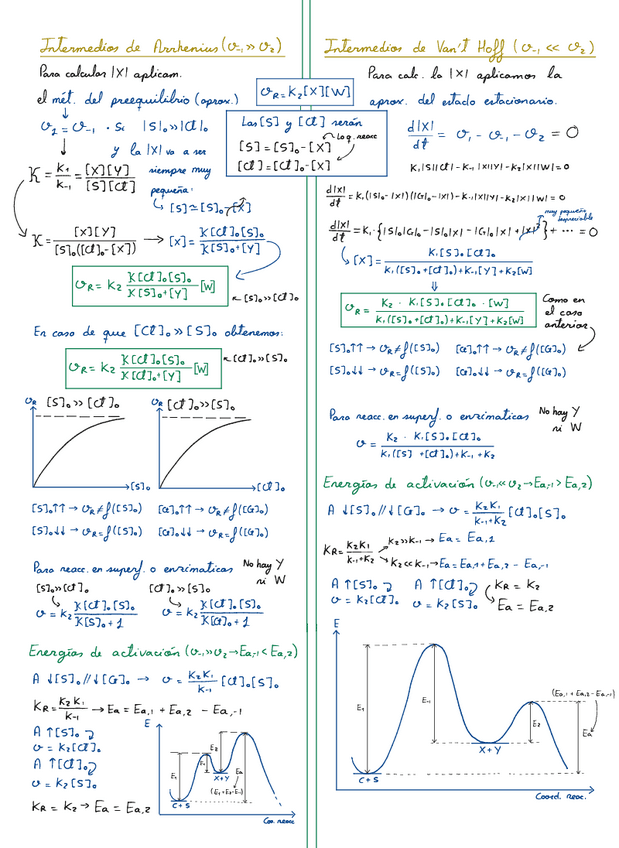 Intermedios de Arrhenius (v₋₁ >> v₂)
Para calcular |X| aplicam.
el mét. del preequilibrio (aprox.)
v₁ = v₋₁ · Si |S|₀ >> |Cl|₀
y la |X| va a ser
siempre muy
pequeña:
[S] ≃ [S]₀ - [X]
K = K₁/K₋₁ = [X][Y]/[S][Cl]
K = [X][Y]/[S]₀([Cl]₀-[X]) → [X] = K[Cl]₀[S]₀/K[S]₀+[Y]
v_R = K₂ K[Cl]₀[S]₀/K[S]₀+[Y] [W]
← [S]₀ >> [Cl]₀
En caso de que [Cl]₀ >> [S]₀ obtenemos:
v_R = K₂ K[Cl]₀[S]₀/K[Cl]₀+[Y] [W]
← [Cl]₀ >> [S]₀
v_R [S]₀ >> [Cl]₀
[S]₀
v_R [Cl]₀ >> [S]₀
[Cl]₀
[S]₀↑↑ → v_R ≠ f([S]₀) [G]₀↑↑ → v_R ≠ f([G]₀)
[S]₀↓↓ → v_R = f([S]₀) [G]₀↓↓ → v_R = f([G]₀)
Para reacc. en superf. o enzimaticas No hay Y
ni W
[S]₀ >> [Cl]₀ [Cl]₀ >> [S]₀
v = K₂ K[Cl]₀[S]₀/K[S]₀+1 v = K₂ K[Cl]₀[S]₀/K[G]₀+1
Energías de activación (v₋₁ >> v₂ → Ea,₋₁ < Ea,2)
A ↓[S]₀ // ↓[G]₀ → v = K₂K₁/K₋₁ [Cl]₀[S]₀
K_R = K₂K₁/K₋₁ → Ea = Ea,1 + Ea,2 - Ea,-1
A ↑[S]₀
v = K₂[Cl]₀
A ↑[Cl]₀
v = K₂[S]₀
K_R = K₂ → Ea = Ea,2
E
E₁
E₂
Ea
X+Y
(E₁+E₂-E₋₁)
C + S
Coo. reacc
v_R = K₂[X][W]
Las [S] y [Cl] serán
Lo q. reacc
[S] = [S]₀ - [X]
[Cl] = [Cl]₀ - [X]
Intermedios de Van't Hoff (v₋₁ << v₂)
Para calc. la |X| aplicamos la
aprox. del estado estacionario.
d|X|/dt = v₁ - v₋₁ - v₂ = 0
K₁|S||Cl| - K₋₁|X||Y| - K₂|X||W| = 0
d|X|/dt = K₁(|S|₀-|X|)(|G|₀-|X|) - K₋₁|X||Y| - K₂|X||W| = 0
muy pequeño
d|X|/dt = K₁·{|S|₀|G|₀ - |S|₀|X| - |G|₀|X| + |X|²} + ··· = 0
[X] = K₁[S]₀[Cl]₀/K₁([S]₀+[Cl]₀)+K₋₁[Y]+K₂[W]
⇓
v_R = K₂ · K₁[S]₀[Cl]₀ · [W]/K₁([S]₀+[Cl]₀)+K₋₁[Y]+K₂[W]
Como en
el caso
anterior
[S]₀↑↑ → v_R ≠ f([S]₀) [G]₀↑↑ → v_R ≠ f([G]₀)
[S]₀↓↓ → v_R = f([S]₀) [G]₀↓↓ → v_R = f([G]₀)
Para reacc. en superf. o enzimaticas No hay Y
ni W
v = K₂ · K₁[S]₀[Cl]₀/K₁([S]+[Cl]₀)+K₋₁+K₂
Energías de activación (v₋₁ << v₂ → Ea,-1 > Ea,2)
A ↓[S]₀ // ↓[G]₀ → v = K₂K₁/K₋₁+K₂ [Cl]₀[S]₀
K_R = K₂K₁/K₋₁+K₂
K₂ >> K₋₁ → Ea = Ea,1
K₂ << K₋₁ → Ea = Ea,1 + Ea,2 - Ea,-1
A ↑[S]₀ A ↑[Cl]₀ K_R = K₂
v = K₂[Cl]₀ v = K₂[S]₀ → Ea = Ea,2
E
E₁
E₋₁
E₂
(Ea,1 + Ea,2 - Ea,-1)
Ea
X+Y
C + S
Coord. reac.